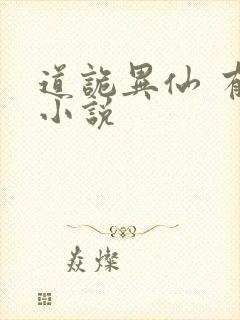 道詭異仙
小説
焱燦